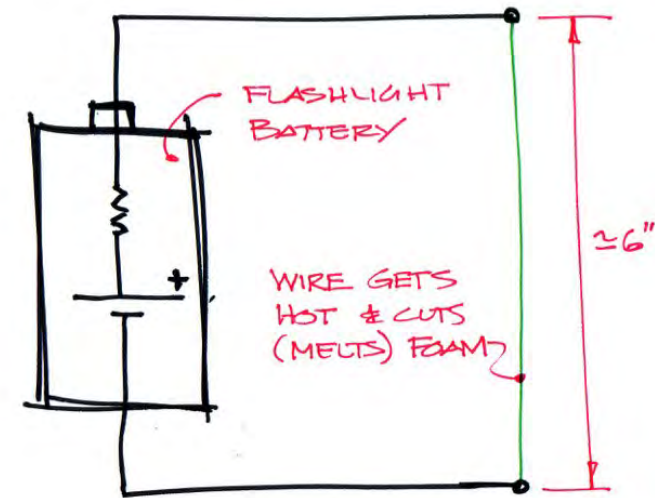 FLASHLIGHT
BATTERY
+
≃6"
WIRE GETS
HOT & CUTS
(MELTS) FOAM